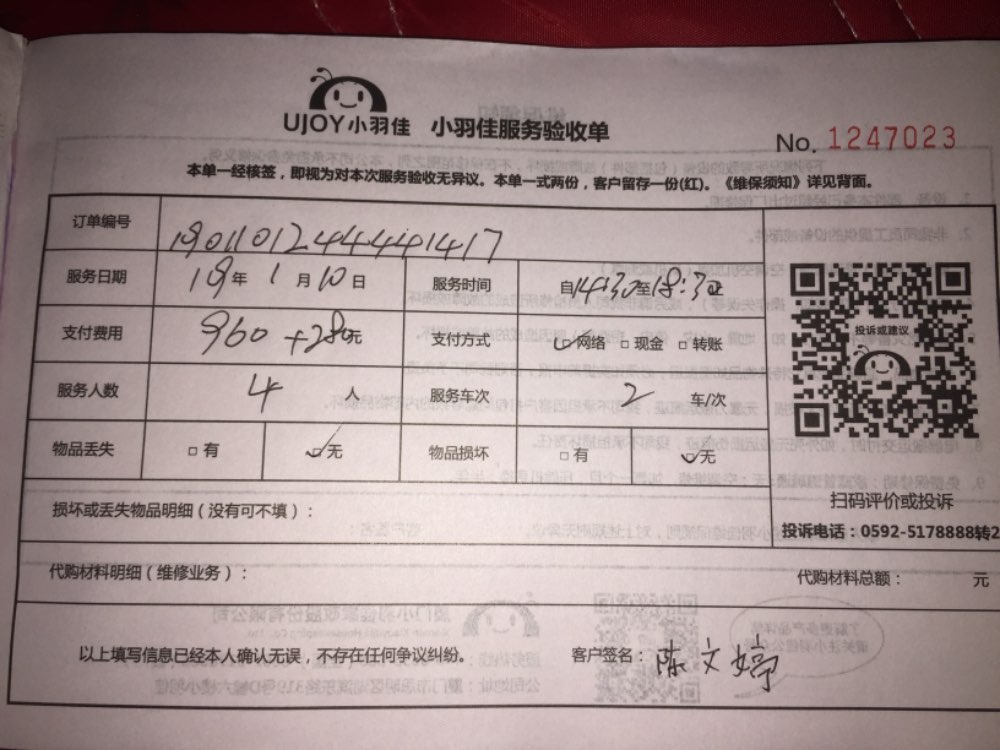 UJOY小羽佳 小羽佳服务验收单
No. 1247023
本单一经核签，即视为对本次服务验收无异议。本单一式两份，客户留存一份(红)。《维保须知》详见背面。
订单编号 190110124444441417
服务日期 19年 1月10日 服务时间 自14:30至18:30
支付费用 960+280元 支付方式 网络 现金 转账
服务人数 4 人 服务车次 2 车/次
物品丢失 有 无 物品损坏 有 无
投诉或建议
扫码评价或投诉
损坏或丢失物品明细（没有可不填）：
投诉电话：0592-5178888转2
代购材料明细（维修业务）： 代购材料总额： 元
以上填写信息已经本人确认无误，不存在任何争议纠纷。 客户签名：陈文婷